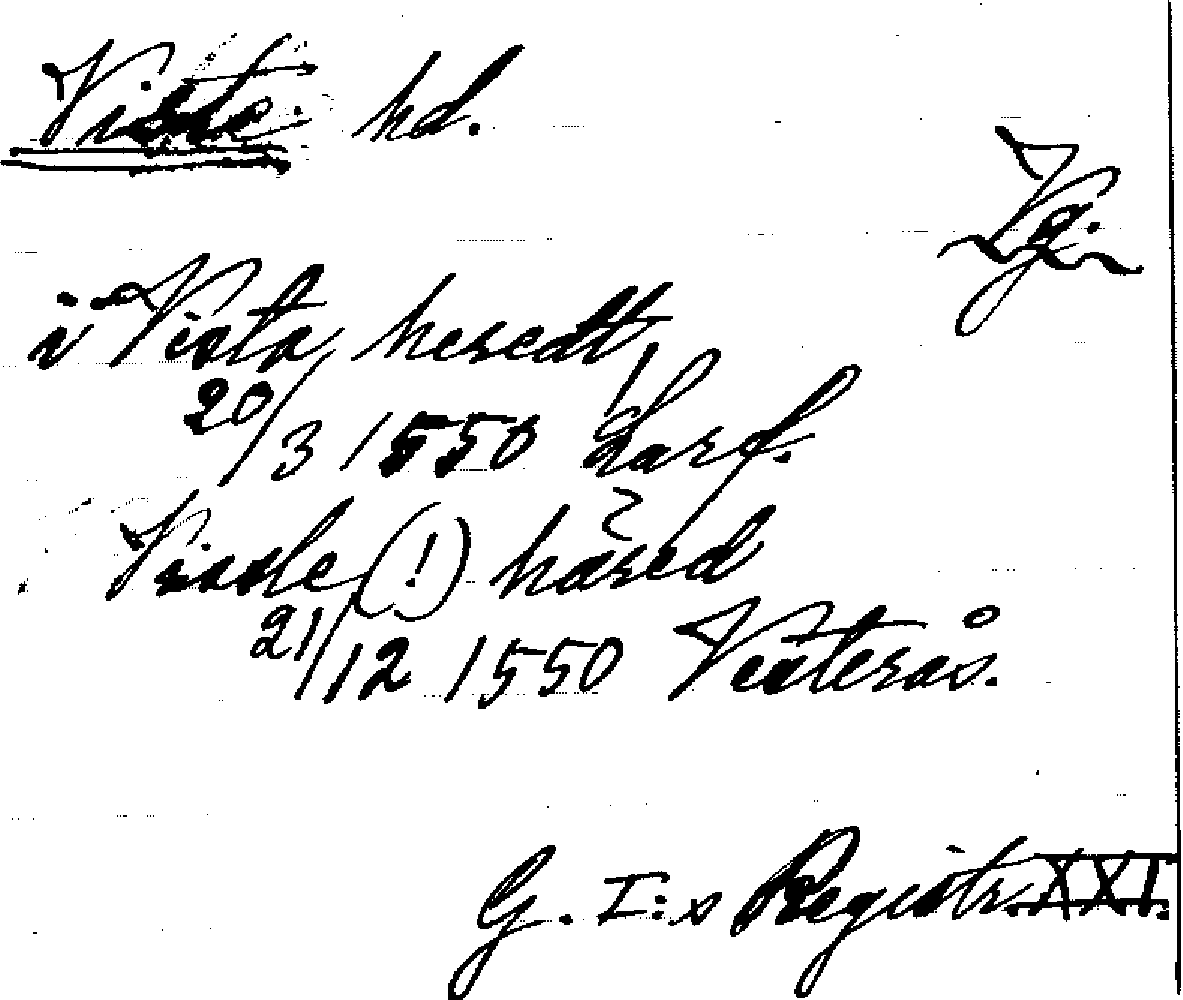 Viste hd.
Vg.
i Vista heredt
20/3 1550
Visdle (!) häred
21/12 1550 Västerås.
G. I:s Registr. XXI.